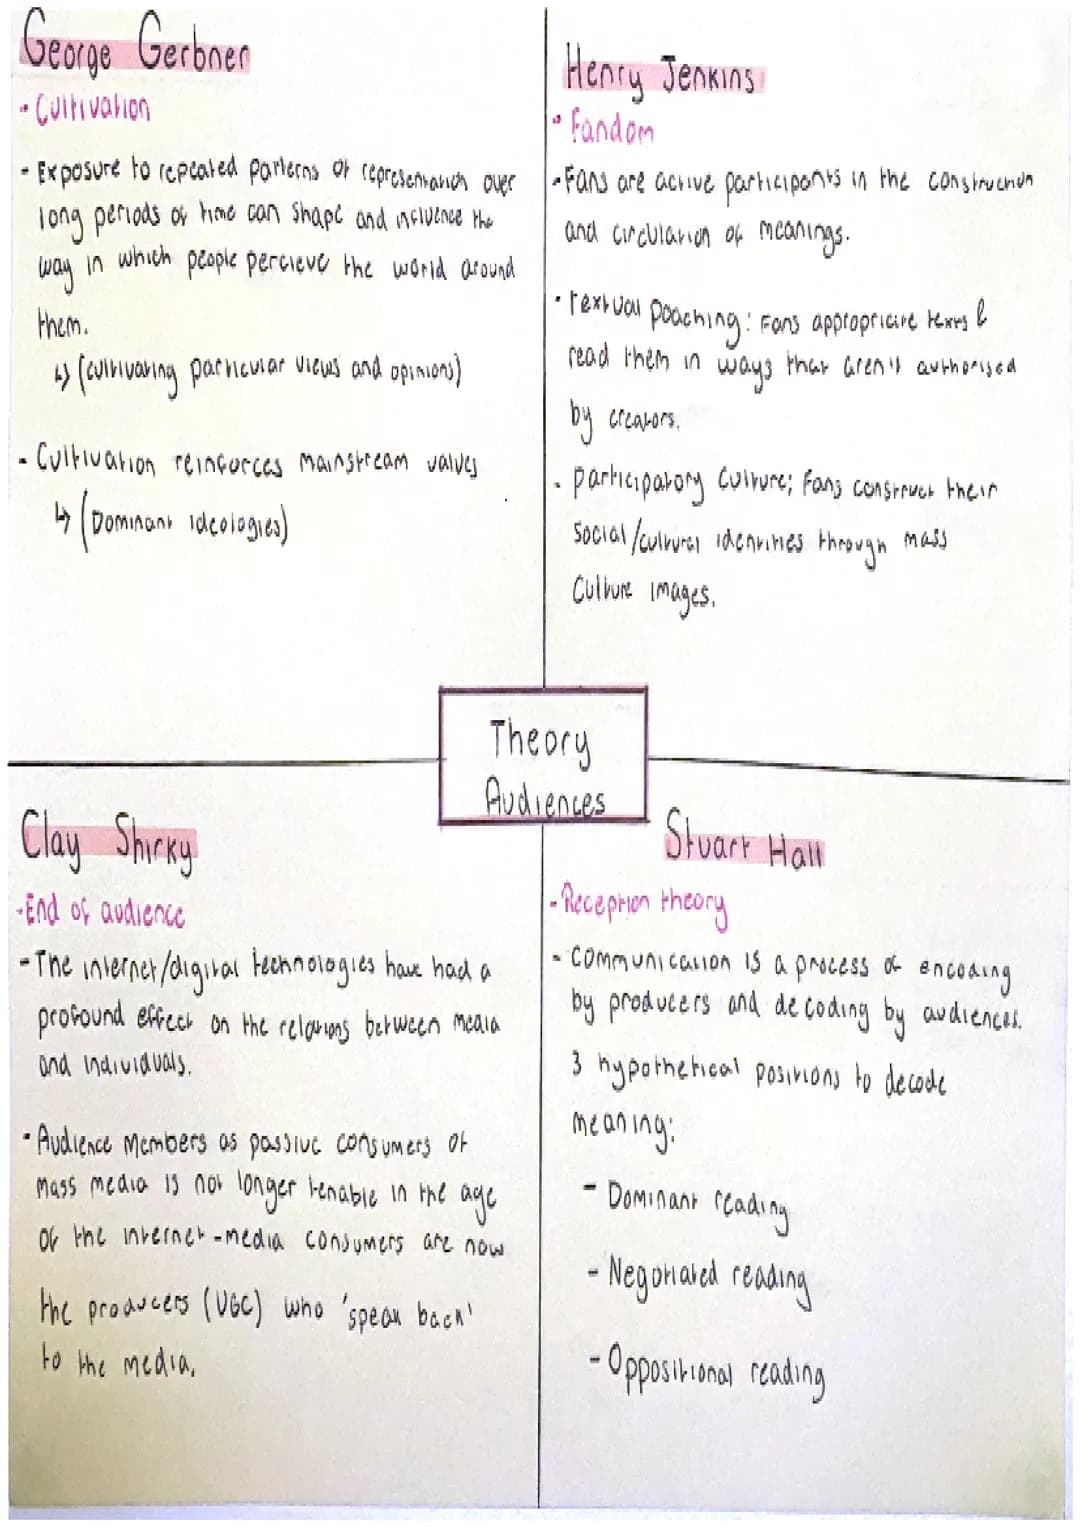 George Gerbner
- Cultivation
- Exposure to repeated patterns of representation over
long periods of time can shape and influence the
way in which people percieve the world around
them.
↳ (cultivating particular views and opinions)
- Cultivation reinforces mainstream values
↳ (Dominant ideologies)
Henry Jenkins
• Fandom
- Fans are active participants in the construction
and circulation of meanings.
• Textual poaching: Fans appropriate texts &
read them in ways that aren't authorised
by creators.
• participatory culture; fans construct their
social/cultural identities through mass
culture images.
Theory
Audiences
Clay Shirky
- End of audience
- The internet/digital technologies have had a
profound effect on the relations between media
and individuals.
• Audience members as passive consumers of
mass media is not longer tenable in the age
of the internet - media consumers are now
the producers (UGC) who 'speak back'
to the media.
Stuart Hall
- Reception theory
- Communication is a process of encoding
by producers and decoding by audiences.
3 hypothetical positions to decode
meaning:
- Dominant reading
- Negotiated reading
- Oppositional reading